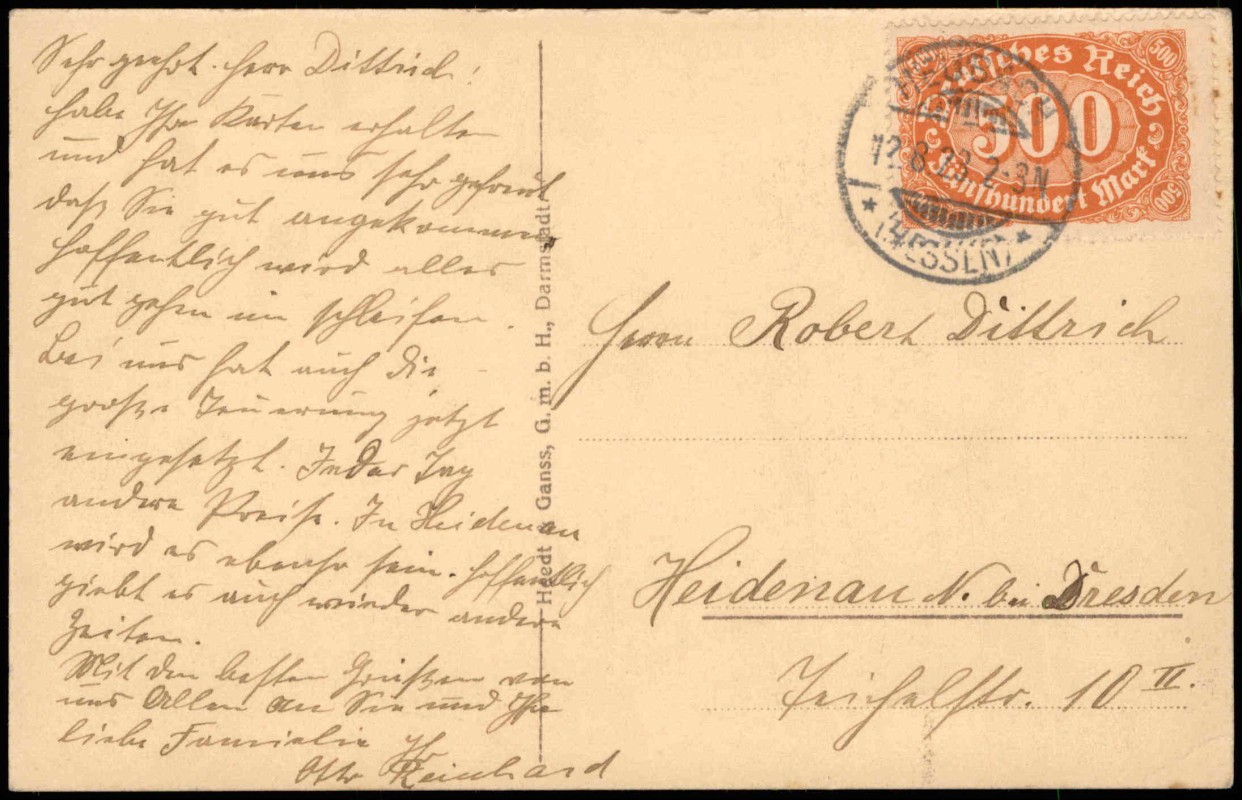 Sehr geehrt. Herr Dittrich!
habe Ihre Karten erhalten
und hat es uns sehr gefreut
daß Sie gut angekommen
hoffentlich wird alles
gut gehen im schleifen.
Bei uns hat auch die
große Teuerung jetzt
eingesetzt. Jeder Tag
andere Preise. In Heidenau
wird es ebenso sein. hoffentlich
giebt es auch wieder andere
Zeiten.
Mit den besten Grüßen von
uns Allen an Sie und Ihre
liebe Familie Ihr
Otto Reinhard
Heedt & Ganss, G. m. b. H., Darmstadt
Deutsches Reich
500
500
500
Fünfhundert Mark
12.8.23. 2-3N
(HESSEN)
Herrn Robert Dittrich
Heidenau N. bei Dresden
10 II.